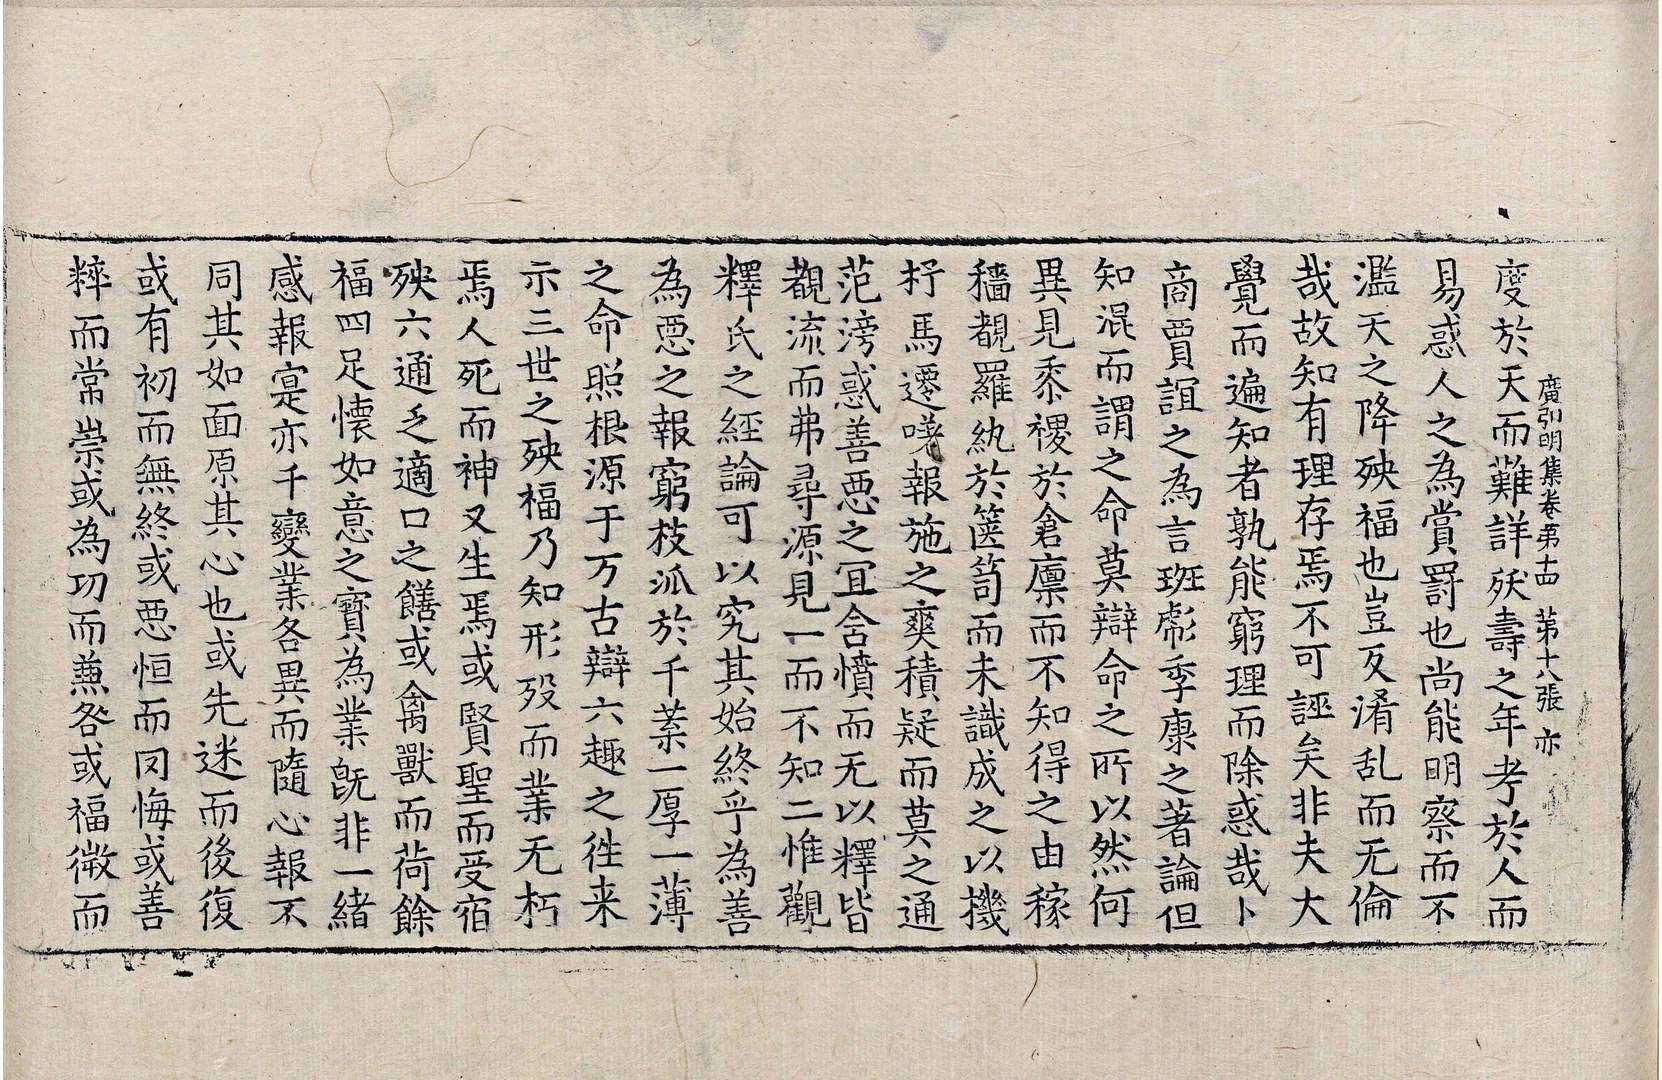 廣弘明集卷第十四 第十八張 亦
度於天而難詳殀壽之年考於人而
易惑人之為賞罰也尚能明察而不
濫天之降殃福也豈反淆乱而无倫
哉故知有理存焉不可誣矣非夫大
覺而遍知者孰能窮理而除惑哉卜
商賈誼之為言班彪季康之著論但
知混而謂之命莫辯命之所以然何
異見黍稷於倉廩而不知得之由稼
穡覩羅紈於篋笥而未識成之以機
杼馬遷嘆報施之爽積疑而莫之通
范滂惑善惡之宜含憤而无以釋皆
覩流而弗尋源見一而不知二惟觀
釋氏之經論可以究其始終乎為善
為惡之報窮枝派於千葉一厚一薄
之命照根源于万古辯六趣之往来
示三世之殃福乃知形殁而業无朽
焉人死而神又生焉或賢聖而受宿
殃六通乏適口之饍或禽獸而荷餘
福四足懷如意之寶為業既非一緒
感報寔亦千變業各異而隨心報不
同其如面原其心也或先迷而後復
或有初而無終或惡恒而罔悔或善
粹而常崇或為功而兼咎或福微而